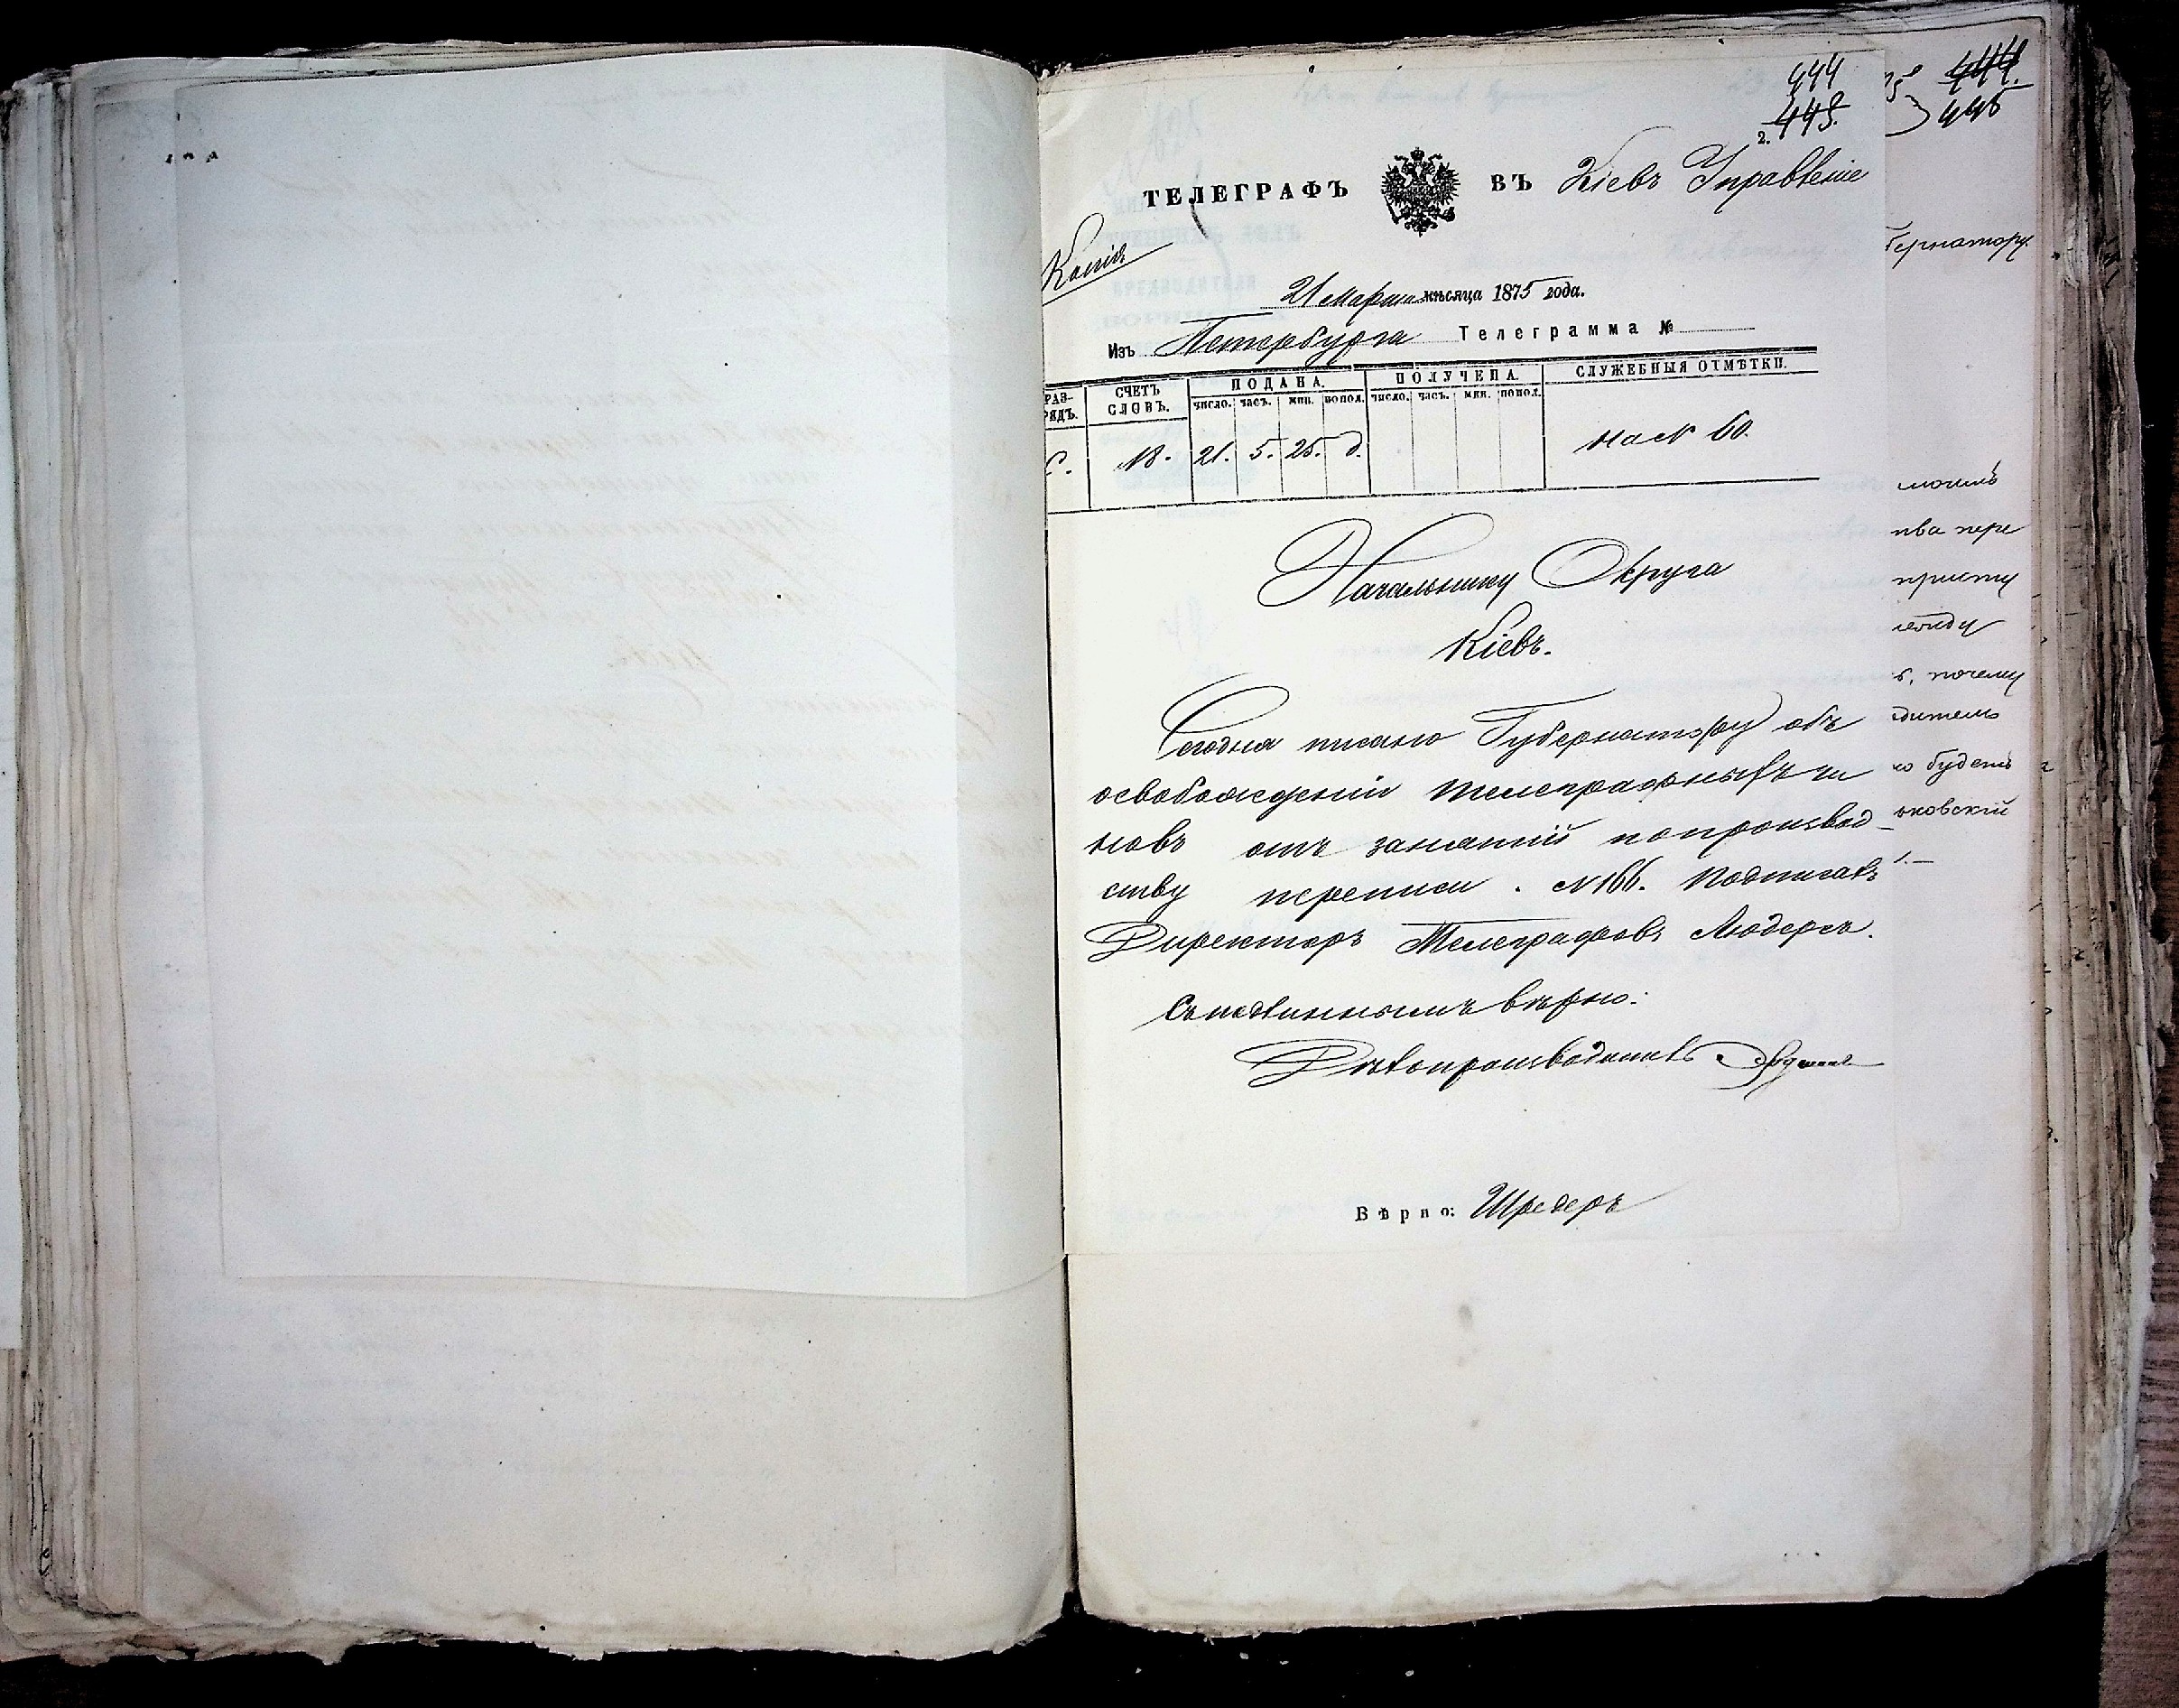 444
2. 443.
444.
445
ТЕЛЕГРАФЪ ВЪ Кіевъ Управленіе
Копія
бернатору.
21 марта мѣсяца 1875 года.
Изъ Петербурга Телеграмма №
РАЗ-РЯДЪ. СЧЕТЪ СЛОВЪ. ПОДАНА. ПОЛУЧЕНА. СЛУЖЕБНЫЯ ОТМѢТКИ.
ЧИСЛО. ЧАСЪ. МИН. ПОПОЛ. ЧИСЛО. ЧАСЪ. МИН. ПОПОЛ.
С. 18. 21. 5. 25. д. на № 60.
Начальнику Округа
Кіевъ.
Сегодня писано Губернатору объ
освобожденіи телеграфныхъ чи
новъ отъ занятій по производ-
ству переписи. №166. Подписалъ
Директоръ Телеграфовъ Людерсъ.
Съ подлиннымъ вѣрно:
Дѣлопроизводитель
Вѣрно: Шредеръ
тва пере
присту
ъ, почему
дитель
ко будетъ
ьковскій